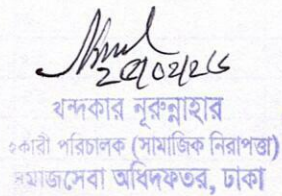 ২৫/০২/২৬
খন্দকার নূরুন্নাহার
সহকারী পরিচালক (সামাজিক নিরাপত্তা)
সমাজসেবা অধিদফতর, ঢাকা